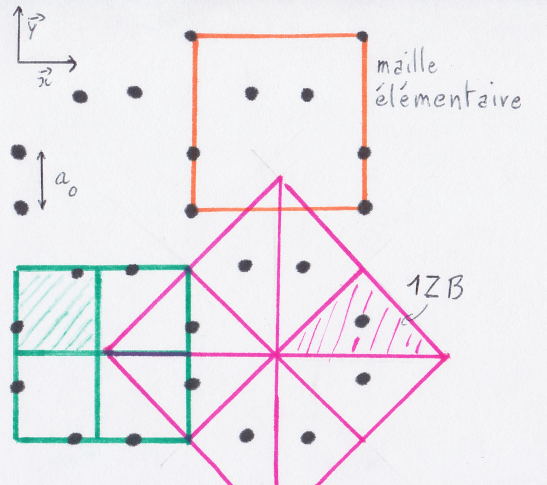 y
x
maille
élémentaire
a₀
1ZB